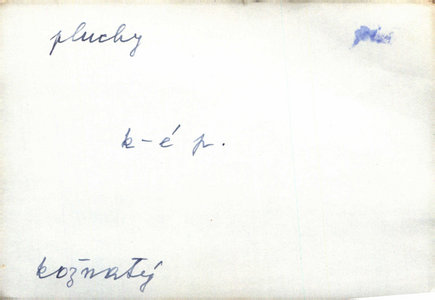 pluchy
k-é p.
kožnatý